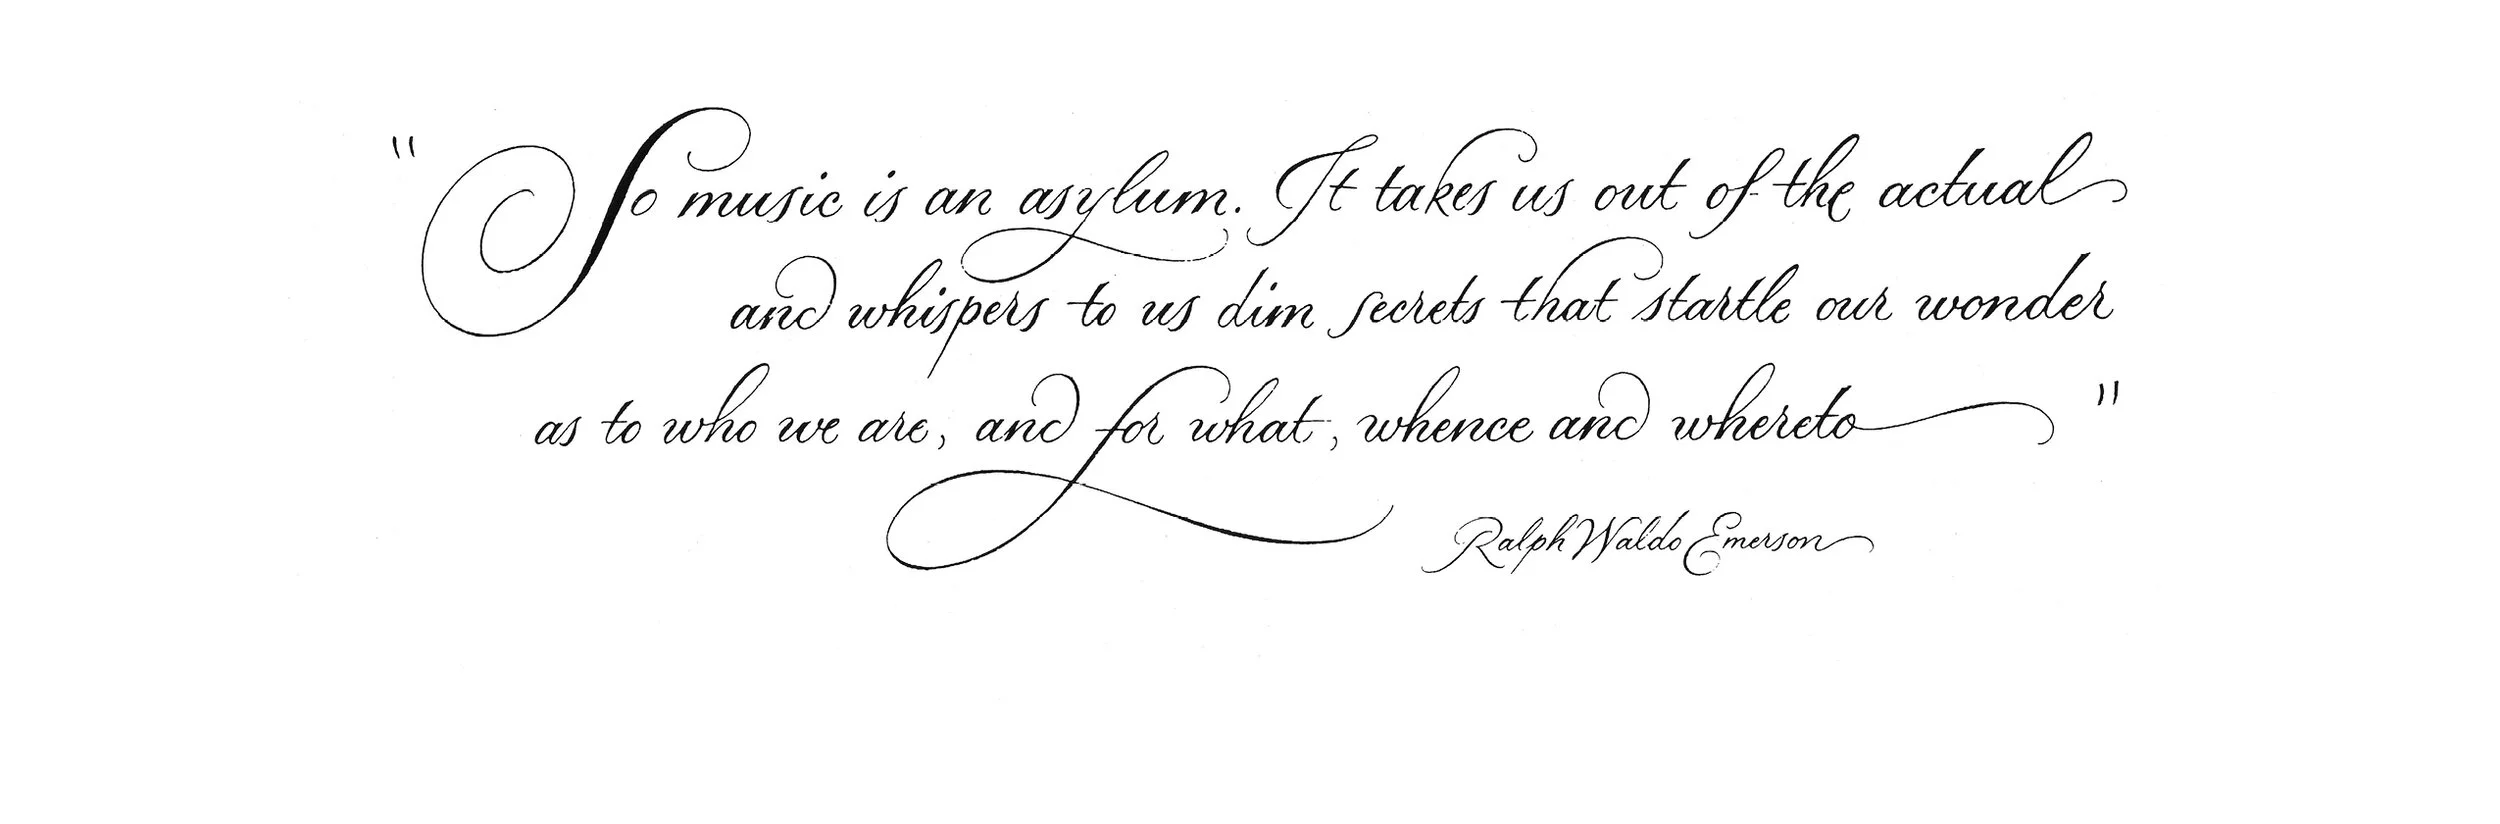 "So music is an asylum. It takes us out of the actual
and whispers to us dim secrets that startle our wonder
as to who we are, and for what, whence and whereto"
Ralph Waldo Emerson